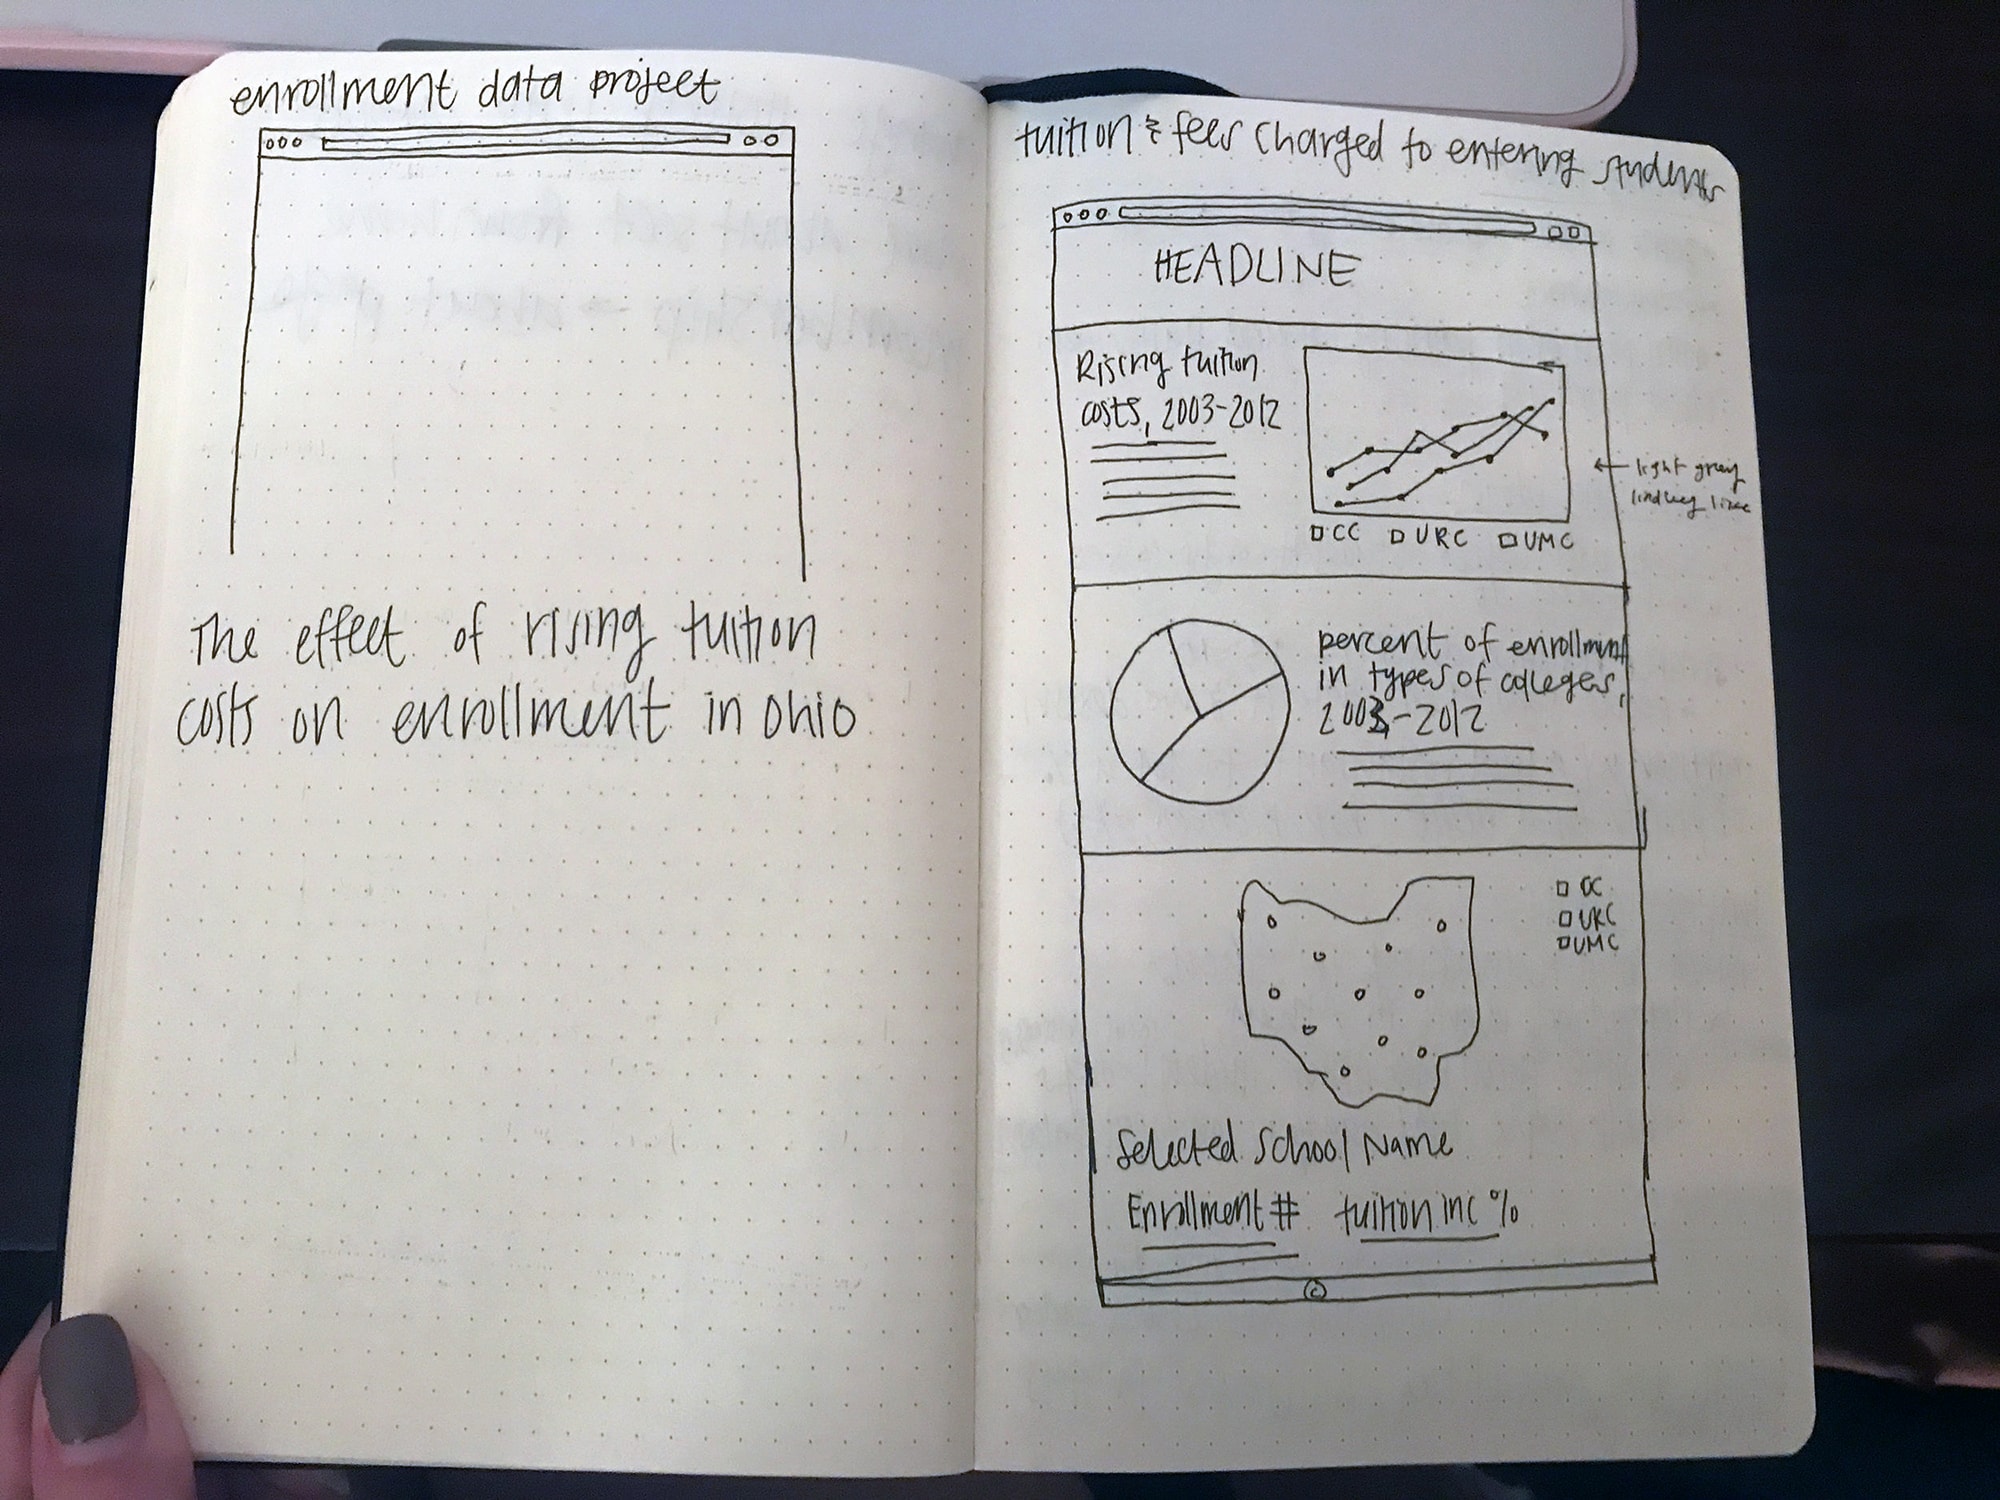 enrollment data project
The effect of rising tuition
costs on enrollment in ohio
tuition & fees charged to entering students
HEADLINE
Rising tuition
costs, 2003-2012
CC URC UMC
light grey
percent of enrollment
in types of colleges,
2003-2012
CC
URC
UMC
Selected School Name
Enrollment # tuition inc %
©